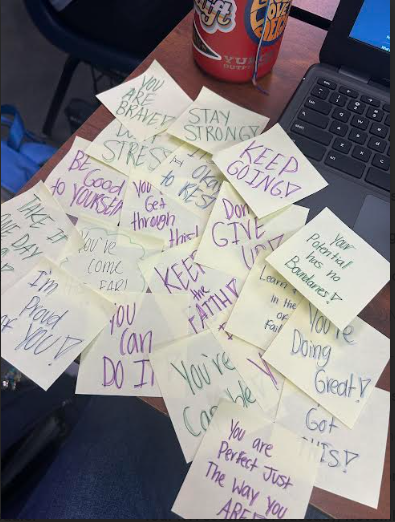 YOU
ARE
BRAVE!
STAY
STRONG!
STRESS
KEEP
GOING!
BE
Good
to YOURSELF
okay
to REST
You
Get
through
this!
Don
GIVE
UP!
Your
Potential
has no
Boundaries!
TAKE IT
ONE DAY
You've
come
FAR!
I'm
Proud
of
YOU!
KEEP
the
FAITH!
Learn
in the
of
Fail
YOU
Can
DO IT
You're
Doing
Great!
You're
Capable
Got
THIS!
You are
Perfect Just
The Way You
ARE!